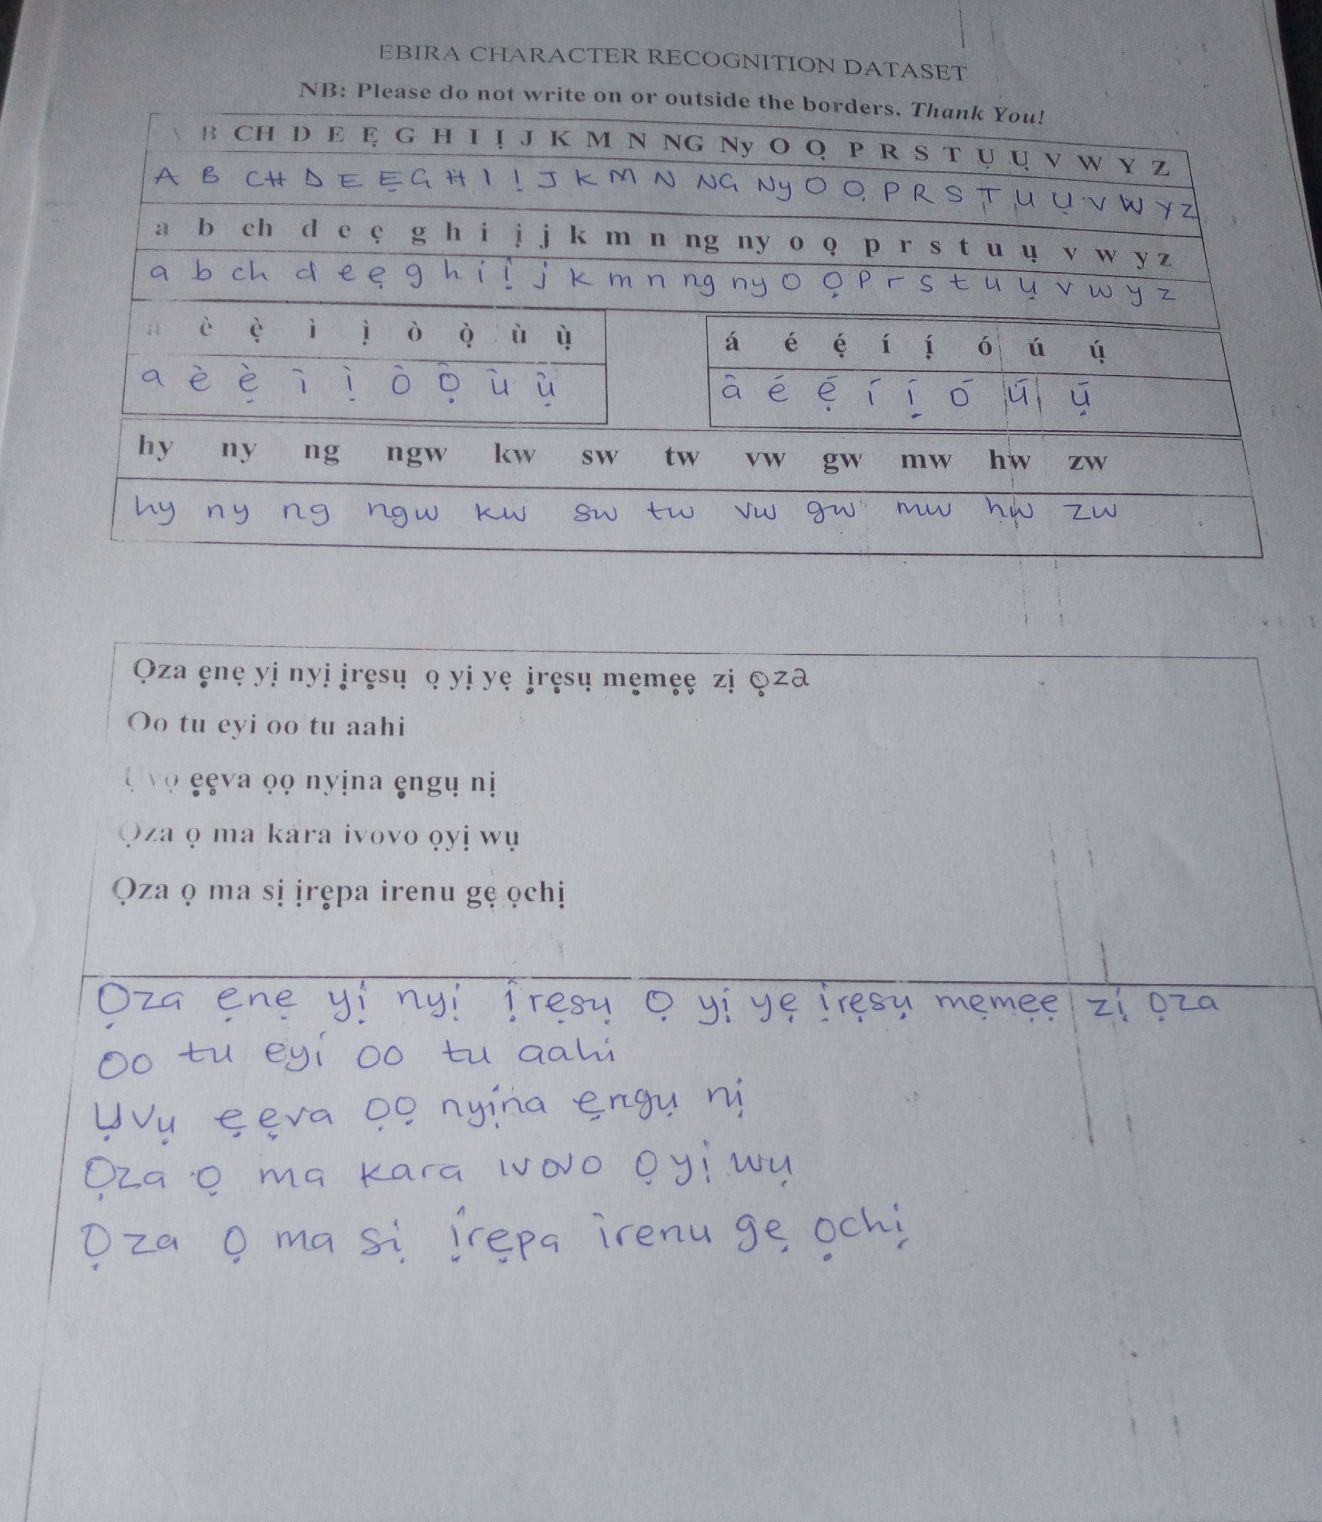 EBIRA CHARACTER RECOGNITION DATASET
NB: Please do not write on or outside the borders. Thank You!
A B CH D E Ẹ G H I Ị J K M N NG Ny O Ọ P R S T Ụ Ụ V W Y Z
A B CH D E Ẹ G H I Ị J K M N NG Ny O Ọ P R S T U Ụ V W Y Z
a b ch d e ẹ g h i ị j k m n ng ny o ọ p r s t u ụ v w y z
a b ch d e ẹ g h i ị j k m n ng ny o ọ p r s t u ụ v w y z
è ẹ̀ ì ị̀ ò ọ̀ ù ụ̀
a è ẹ̀ ì ị̀ ò ọ̀ ù ụ̀
á é ẹ́ í ị́ ó ú ụ́
á é ẹ́ í ị́ ó ú ụ́
hy ny ng ngw kw sw tw vw gw mw hw zw
hy ny ng ngw kw sw tw vw gw mw hw zw
Ọza ẹnẹ yị nyị ịrẹsụ ọ yị yẹ ịrẹsụ mẹmẹẹ zị ọza
Oo tu eyi oo tu aahi
Ụvọ ẹẹva ọọ nyịna ẹngụ nị
Ọza ọ ma kara ivovo ọyị wụ
Ọza ọ ma sị ịrẹpa irenu gẹ ọchị
Ọza ẹnẹ yị nyị ịrẹsụ Ọ yị yẹ ịrẹsụ mẹmẹẹ zị ọza
Oo tu eyi oo tu aahi
Ụvụ ẹẹva ọọ nyịna ẹngụ nị
Ọza ọ ma kara ivovo ọyị wụ
Ọza ọ ma sị ịrẹpa irenu gẹ ọchị